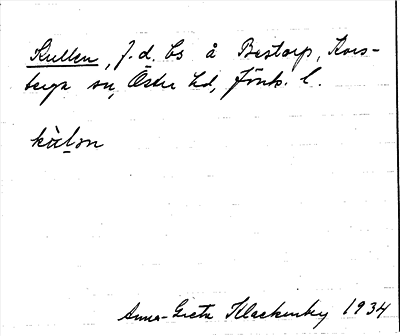 Kullen, f.d. bs å Bestorp, Kors-
berga sn, Östra hd, Jönk. l.
kùlən
Anna-Greta Klackenby 1934